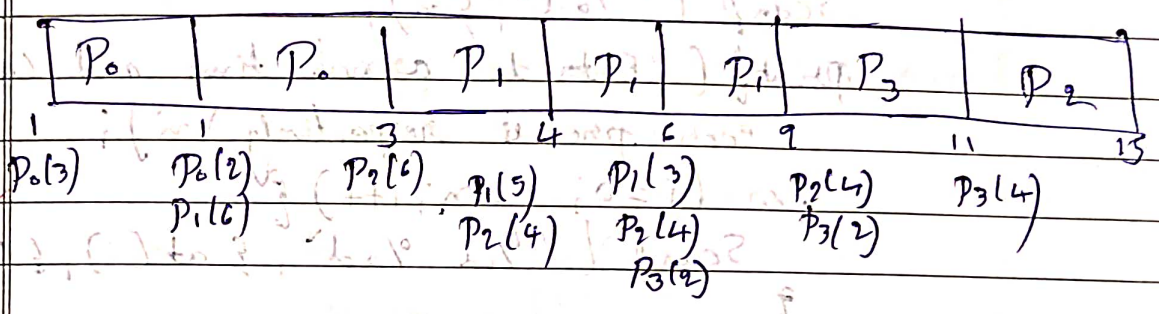 P₀ P₀ P₁ P₁ P₁ P₃ P₂
1 1 3 4 6 9 11 15
P₀(3) P₀(2) P₂(6) P₁(5) P₁(3) P₂(4) P₃(4)
P₁(6) P₂(4) P₂(4) P₃(2)
P₃(2)